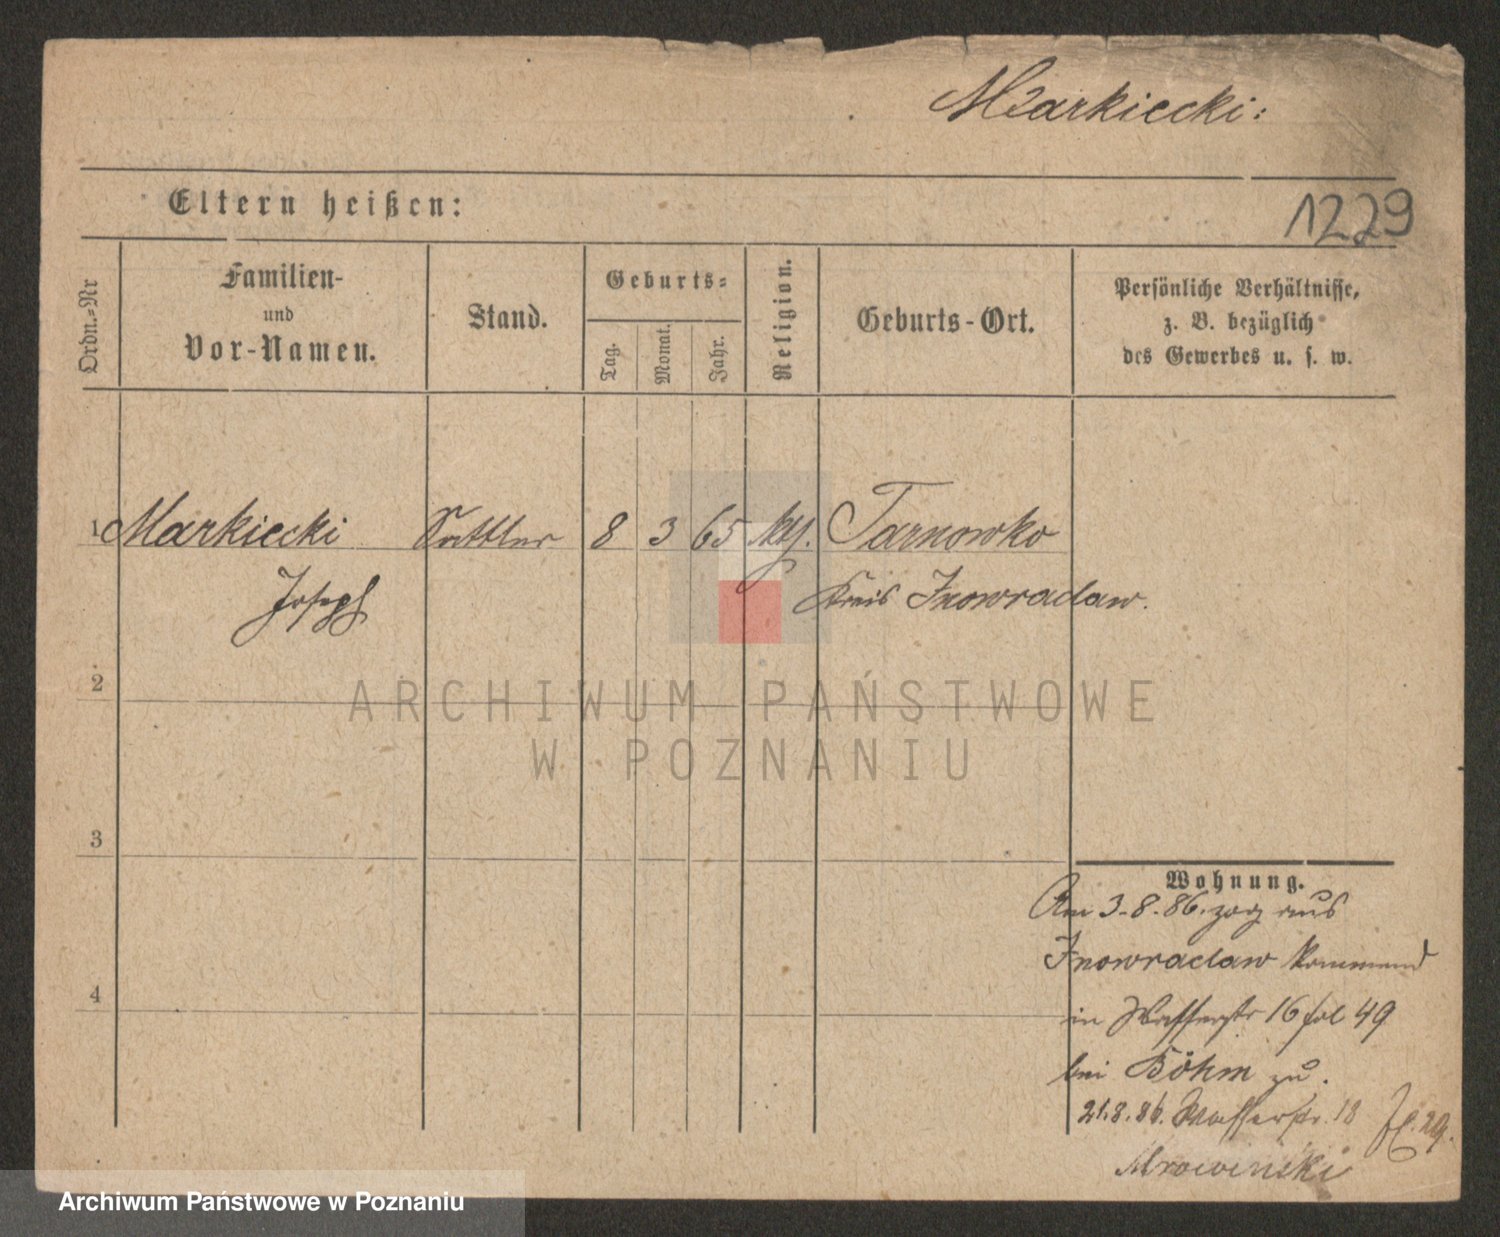 Markiecki:
Eltern heißen:
1229
Ordn.-Nr
Familien-
und
Vor-Namen.
Stand.
Geburts-
Tag.
Monat.
Jahr.
Religion.
Geburts-Ort.
Persönliche Verhältnisse,
z. B. bezüglich
des Gewerbes u. s. w.
1 Markiecki Sattler 8 3 65 kth. Tarnowko
Joseph Kreis Inowraclaw.
2
3
4
Wohnung.
Am 3-8-86. zog aus
Inowraclaw kommend
in Wasserstr 16 fol 49
bei Böhm zu.
21.8.86. Wasserstr. 18
Mrowinski
ARCHIWUM PAŃSTWOWE
W POZNANIU
Archiwum Państwowe w Poznaniu